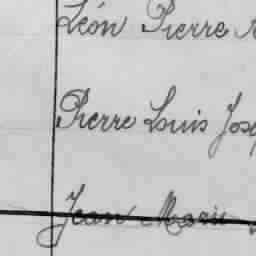 Léon Pierre
Pierre Louis Jose
Jean Marie